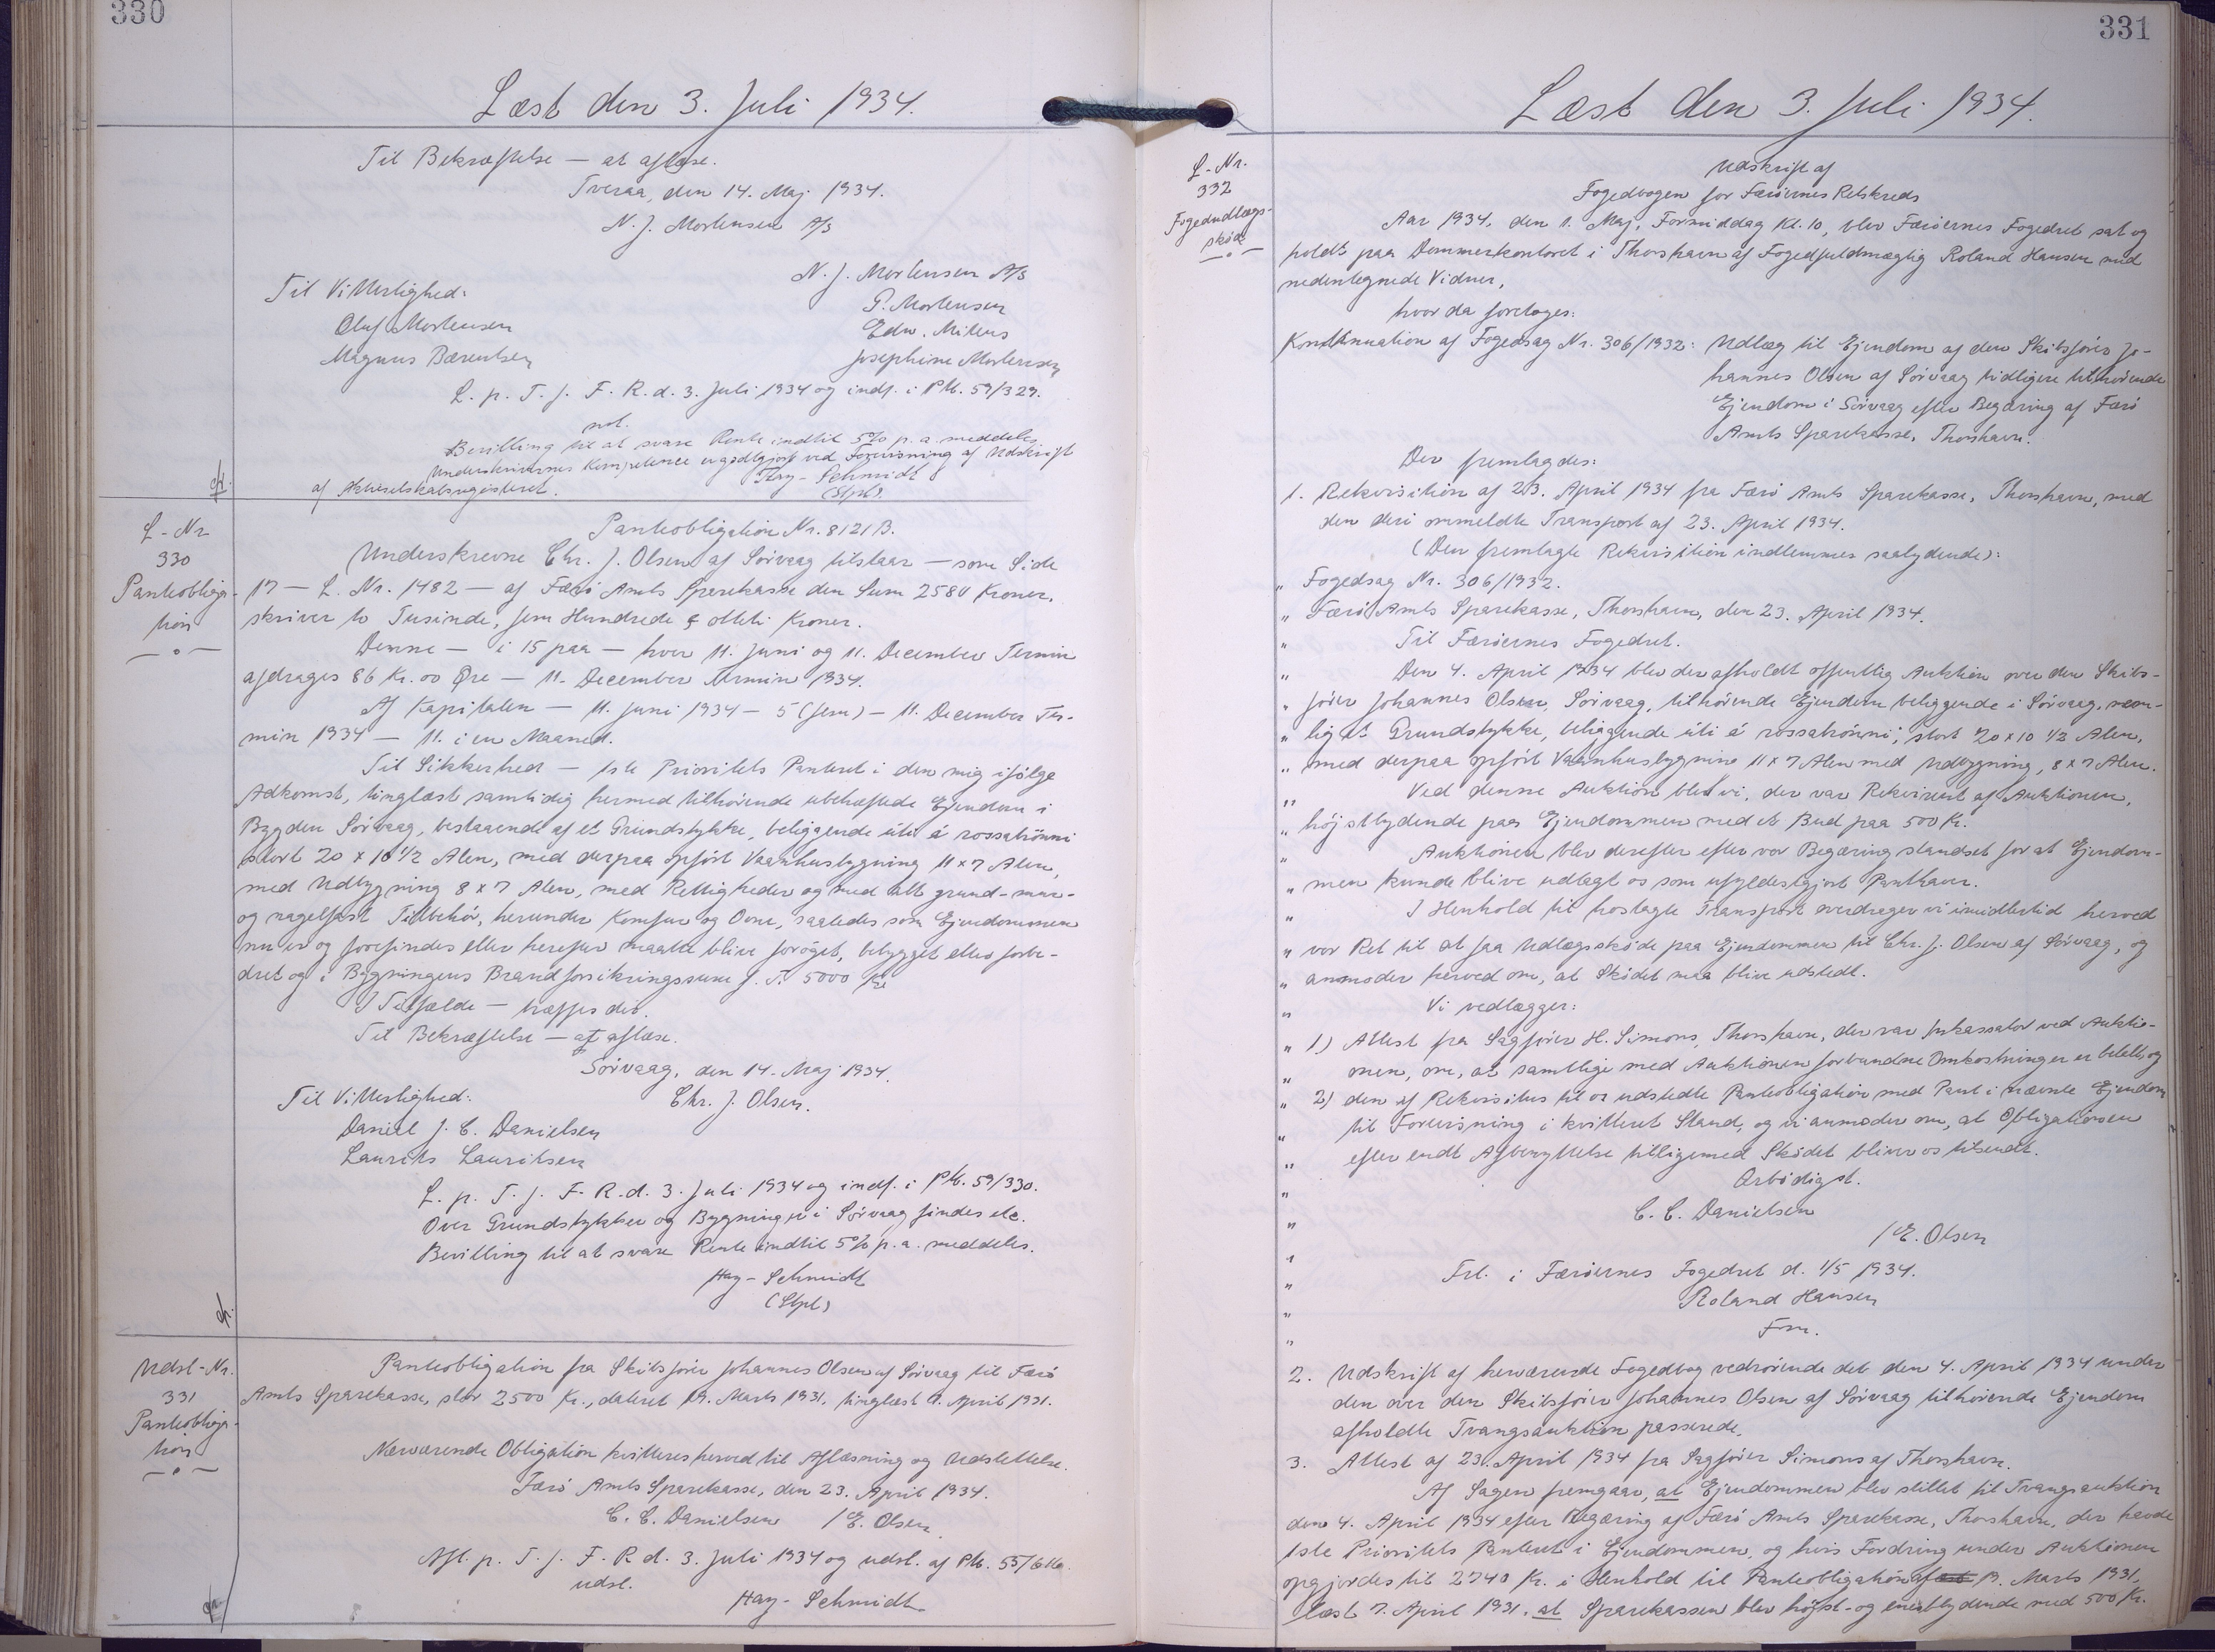 330
Læst den 3. Juli 1934.
Til Bekræftelse — at aflæse.
Tveraa, den 14. Maj 1934.
N. J. Mortensen A/S
N. J. Mortensen A/S
Til Vitterlighed:
P. Mortensen
Oluf Mortensen
Edw. Mitens
Magnus Bærentsen
Josephine Mortensen
L. p. T. f. F. R. d. 3. Juli 1934 og indf. i Pb. 59/329.
not.
Bevilling til at svare Rente indtil 5% p. a. meddeles.
Underskrivernes Kompetence er godtgjort ved Forevisning af Udskrift
af Aktieselskabsregisteret.
Hay-Schmidt
(Stpl)
L-Nr
330
Panteobliga-
tion
Panteobligation Nr. 8121 B.
Underskrevne Chr. J. Olsen af Sörvaag tilstaar — som Side
17 — L. Nr. 1482 — af Færö Amts Sparekasse den Sum 2580 Kroner,
skriver to Tusinde, fem Hundrede & otteti Kroner.
Denne — i 15 paa — hver 11. Juni og 11. December Termin
afdrages 86 Kr. 00 Øre — 11. December Termin 1934.
Af Kapitalen — 11. Juni 1934 — 5 (fem) — 11. December Ter-
min 1934 — 11. i en Maaned.
Til Sikkerhed — 1ste Prioritets Panteret i den mig ifölge
Adkomst, tinglæst samtidig hermed tilhörende ubehæftede Ejendom i
Bygden Sörvaag, bestaaende af et Grundstykke, beliggende úti á rossatrönni
stort 20 x 10 1/2 Alen, med derpaa opfört Vaanhusbygning 11 x 7 Alen,
med Udbygning 8 x 7 Alen, med Rettigheder og med alt grund- mur-
og nagelfast Tilbehör, herunder Komfur og Ovne, saaledes som Ejendommen
nu er og forefindes eller herefter maatte blive foröget, bebygget eller forbe-
dret og i Bygningens Brandforsikringssum f. T. 5000 Kr.
I Tilfælde — træffes der.
Til Bekræftelse — at aflæse.
Sörvaag, den 14. Maj 1934.
Til Vitterlighed:
Chr. J. Olsen.
Daniel J. C. Danielsen
Laurits Lauritsen
L. p. T. f. F. R. d. 3. Juli 1934 og indf. i Pb. 59/330.
Over Grundstykker og Bygninger i Sörvaag findes ele.
Bevilling til at svare Rente indtil 5% p. a. meddeles.
Hay-Schmidt
(Stpl)
Udsl-Nr.
331
Panteobliga-
tion
Panteobligation fra Skibsförer Johannes Olsen af Sörvaag til Færö
Amts Sparekasse, stor 2500 Kr., dateret 19. Marts 1931, tinglæst 7. April 1931.
Nærværende Obligation kvitteres herved til Aflæsning og Udslettelse.
Færö Amts Sparekasse, den 23. April 1934.
C. C. Danielsen /E. Olsen.
Afl. p. T. f. F. R. d. 3. Juli 1934 og udsl. af Pb.
udsl.
Hay-Schmidt
331
Læst den 3. Juli 1934.
L-Nr.
332
Fogedudlægs-
sköde
Udskrift af
Fogedbogen for Færöernes Retskreds
Aar 1934, den 1. Maj, Formiddag Kl. 10, blev Færöernes Fogedret sat og
holdt paa Dommerkontoret i Thorshavn af Fogedfuldmægtig Roland Hansen med
nedentegnede Vidner,
hvor da foretoges:
Kontinuation af Fogedsag Nr. 306/1932: Udlæg til Ejendom af den Skibsförer Jo-
hannes Olsen af Sörvaag tidligere tilhörende
Ejendom i Sörvaag efter Begæring af Færö
Amts Sparekasse, Thorshavn.
Der fremlagdes:
1. Rekvisition af 23. April 1934 fra Færö Amts Sparekasse, Thorshavn, med
den deri ommeldte Transport af 23. April 1934.
(Den fremlagte Rekvisition indlemmes saalydende):
" Fogedsag Nr. 306/1932.
" Færö Amts Sparekasse, Thorshavn, den 23. April 1934.
" Til Færöernes Fogedret.
" Den 4. April 1934 blev der afholdt offentlig Auktion over den Skibs-
" förer Johannes Olsen, Sörvaag, tilhörende Ejendom beliggende i Sörvaag, nem-
" lig et Grundstykke, beliggende úti á rossatrönni, stort 20 x 10 1/2 Alen,
" med derpaa opfört Vaanhusbygning 11 x 7 Alen med Udbygning, 8 x 7 Alen.
" Ved denne Auktion blev vi, der var Rekvirent af Auktionen,
" höjstbydende paa Ejendommen med et Bud paa 500 Kr.
" Auktionen blev derefter efter vor Begæring standset for at Ejendom-
" men kunde blive udlagt os som ufyldestgjort Panthaver.
" I Henhold til hoslagte Transport overdrager vi imidlertid herved
" vor Ret til at faa Udlægssköde paa Ejendommen til Chr. J. Olsen af Sörvaag, og
" anmoder herved om, at Sködet maa blive udstedt.
" Vi vedlægger:
" 1) Attest fra Sagförer H. Simons, Thorshavn, der var Inkassator ved Auktio-
" onen, om, at samtlige med Auktionen forbundne Omkostninger er betalt, og
" 2) den af Rekvisitus til os udstedte Panteobligation med Pant i nævnte Ejendom
" til Forevisning i kvitteret Stand, og vi anmoder om, at Obligationen
" efter endt Afbenyttelse tilligemed Sködet bliver os tilsendt.
" Ærbödigst.
" C. C. Danielsen
" /E. Olsen
" Frl. i Færöernes Fogedret d. 1/5 1934.
" Roland Hansen
" Fm.
2. Udskrift af herværende Fogedbog vedrörende det den 4. April 1934 under
den over den Skibsförer Johannes Olsen af Sörvaag tilhörende Ejendom
afholdte Tvangsauktion passerede.
3. Attest af 23. April 1934 fra Sagförer Simons af Thorshavn.
Af Sagen fremgaar, at Ejendommen blev stillet til Tvangsauktion
den 4. April 1934 efter Begæring af Færö Amts Sparekasse, Thorshavn, der havde
1ste Prioritets Panteret i Ejendommen, og hvis Fordring under Auktionen
opgjordes til 2740 Kr. i Henhold til Panteobligation af 19. Marts 1931,
læst 7. April 1931, at Sparekassen blev höjst- og enestbydende med 500 Kr.